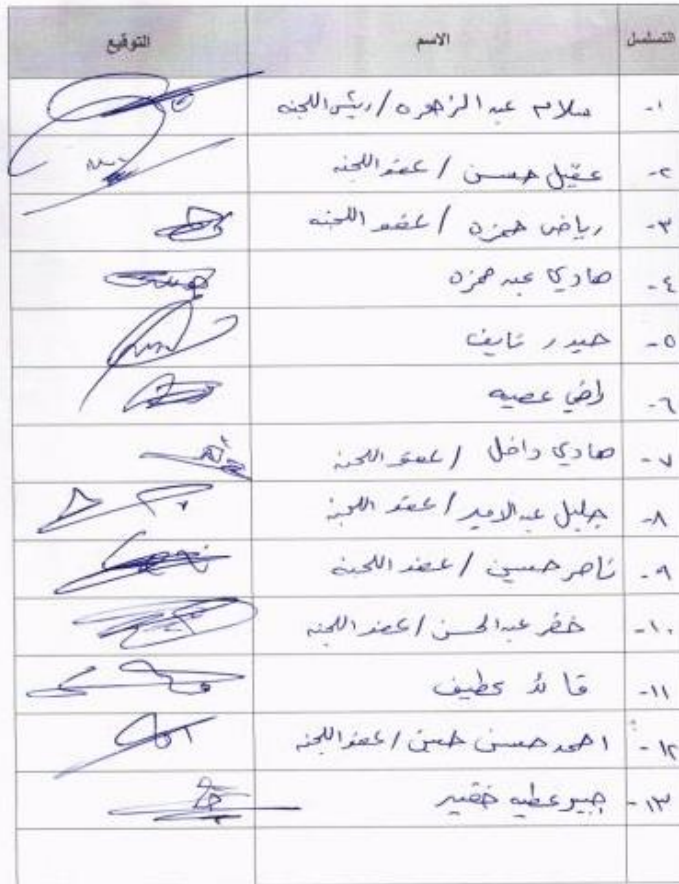 التسلسل الاسم التوقيع
١- سلام عبد الزهره / رئيس اللجنه
٢- عقيل حسن / عضو اللجنه
٣- رياض حمزه / عضو اللجنه
٤- هادي عبد حمزه
٥- حيدر نايف
٦- راضي عطيه
٧- هادي داخل / عضو اللجنه
٨- جليل عبد الامير / عضو اللجنه
٩- ناصر حسين / عضو اللجنه
١٠- خضر عبد الحسن / عضو اللجنه
١١- قائد
١٢- احمد حسن / عضو اللجنه
١٣- عطيه